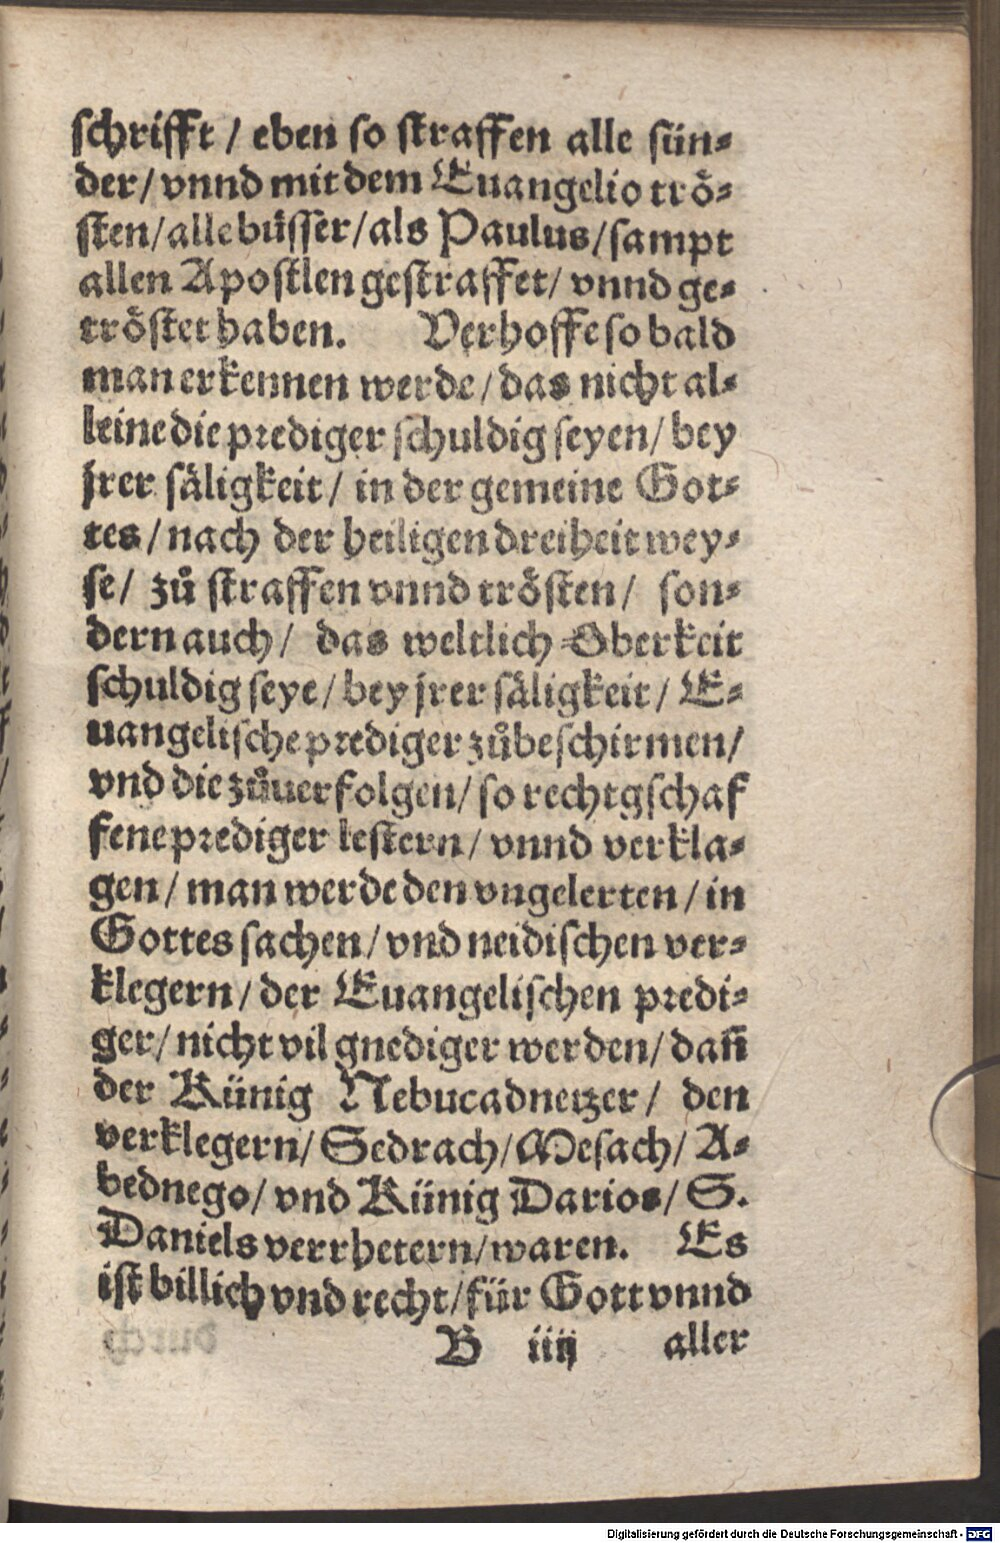 schrifft / eben so straffen alle sün⸗
der / vnnd mit dem Euangelio trö⸗
sten / alle büsser / als Paulus / sampt
allen Apostlen gestraffet / vnnd ge⸗
tröstet haben. Verhoffe so bald
man erkennen werde / das nicht al⸗
leine die prediger schuldig seyen / bey
jrer säligkeit / in der gemeine Got⸗
tes / nach der heiligen dreiheit wey⸗
se / zů straffen vnnd trösten / son⸗
dern auch / das weltlich Oberkeit
schuldig seye / bey jrer säligkeit / E⸗
uangelische prediger zůbeschirmen /
vnd die zůuerfolgen / so rechtgschaf
fene prediger lestern / vnnd verkla⸗
gen / man werde den vngelerten / in
Gottes sachen / vnd neidischen ver⸗
klegern / der Euangelischen predi⸗
ger / nicht vil gnediger werden / dañ
der Künig Nebucadnetzer / den
verklegern / Sedrach / Mesach / A⸗
bednego / vnd Künig Darios / S.
Daniels verrhetern / waren. Es
ist billich vnd recht / für Gott vnnd
B iiij aller
Digitalisierung gefördert durch die Deutsche Forschungsgemeinschaft - DFG